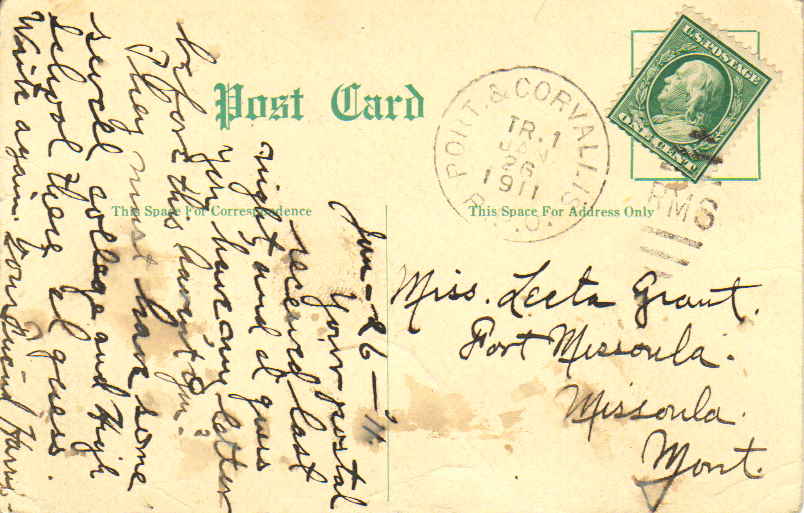 Post Card
PORT. & CORVALLIS
TR. 1
JAN
26
1911
R.P.O.
RMS
U.S. POSTAGE
ONE CENT
This Space For Correspondence
This Space For Address Only
Miss. Leeta Grant.
Fort Missoula.
Missoula.
Mont.
Jan-26-'11
Your postal
received last
night and I guess
you have my letter
before this haven't you.
They must have some
swell college and High
school there I guess.
Write again. Your Friend Harris